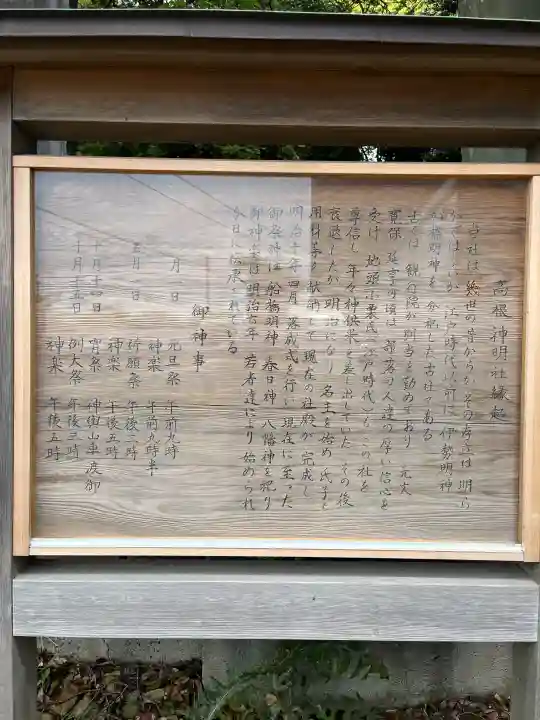 高根神明社縁起
当社は幾世の昔からかその存立は明ら
かではないが 江戸時代以前に 伊勢明神
明神を 分祀した古社である
古くは 観行院が別当を勤めており 元文
寛保 延享の頃は 部落の人達の厚い信心を
受け 地頭小栗氏(江戸時代)も この社を
尊信し 年々神供米を差し出していた その後
衰退したが 明治になり 名主を始め 氏子と
用材等の献納して 現在の社殿が 完成し
明治十年四月 落成式を行い 現在に至った
御祭神は 船橋明神 春日神 八幡神を祀り
御神楽は明治右年 若者達により 始められ
今日に伝承されている
御神事
一月一日 元旦祭 午前九時
神楽 午前九時半
五月一日 祈願祭 午後二時
神楽 午後五時
十月十四日 宵祭 神輿山車渡御
十月十五日 例大祭 午後三時
神楽 午後五時